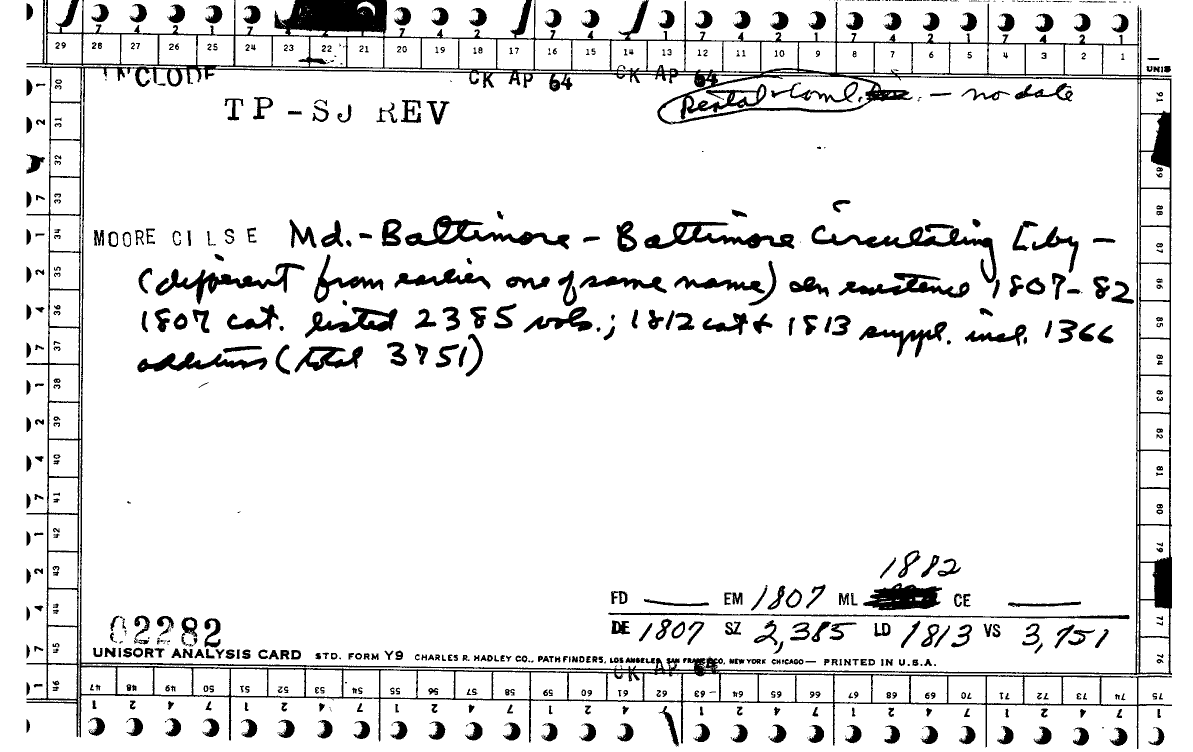 7 4 2 1 7 4 2 1 7 4 2 1 7 4 2 1 7 4 2 1 7 4 2 1
29 28 27 26 25 24 23 22 21 20 19 18 17 16 15 14 13 12 11 10 9 8 7 6 5 4 3 2 1
INCLUDE CK AP 64 CK AP 64
Rental & Coml. — no date
TP-SJ REV
MOORE CI LSE Md.-Baltimore - Baltimore Circulating Lby -
(different from earlier one of same name) In existence 1807-82
1807 cat. listed 2385 vols.; 1812 cat & 1813 suppl. incl. 1366
additions (total 3751)
1882
FD EM 1807 ML CE
DE 1807 SZ 2,385 LD 1813 VS 3,751
02282
UNISORT ANALYSIS CARD STD. FORM Y9 CHARLES R. HADLEY CO., PATHFINDERS, LOS ANGELES, SAN FRANCISCO, NEW YORK CHICAGO — PRINTED IN U.S.A.
CK AP 64
47 48 49 50 51 52 53 54 55 56 57 58 59 60 61 62 63 64 65 66 67 68 69 70 71 72 73 74 75
1 2 4 7 1 2 4 7 1 2 4 7 1 2 4 7 1 2 4 7 1 2 4 7 1 2 4 7
30 31 32 33 34 35 36 37 38 39 40 41 42 43 44 45 46
91 89 88 87 86 85 84 83 82 81 80 79 77 76